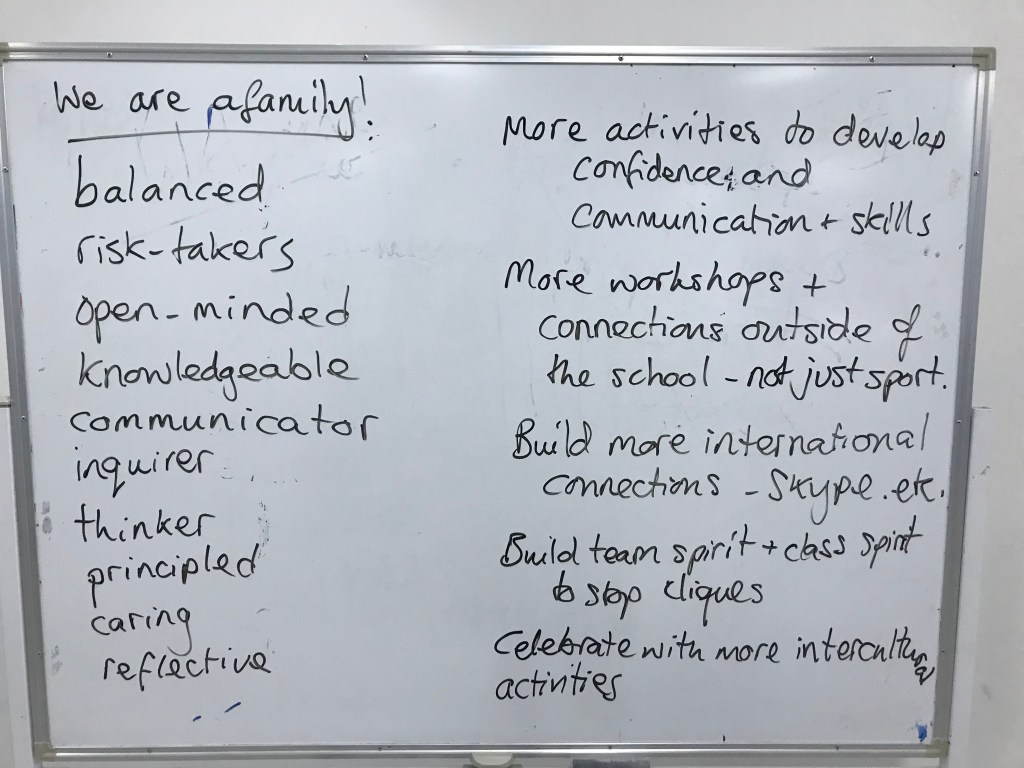 We are a family!
balanced
risk-takers
open-minded
knowledgeable
communicator
inquirer
thinker
principled
caring
reflective
More activities to develop
confidence, and
communication + skills
More workshops +
connections outside of
the school - not just sport.
Build more international
connections - Skype.etc.
Build team spirit + class spirit
to stop cliques
Celebrate with more intercultural
activities